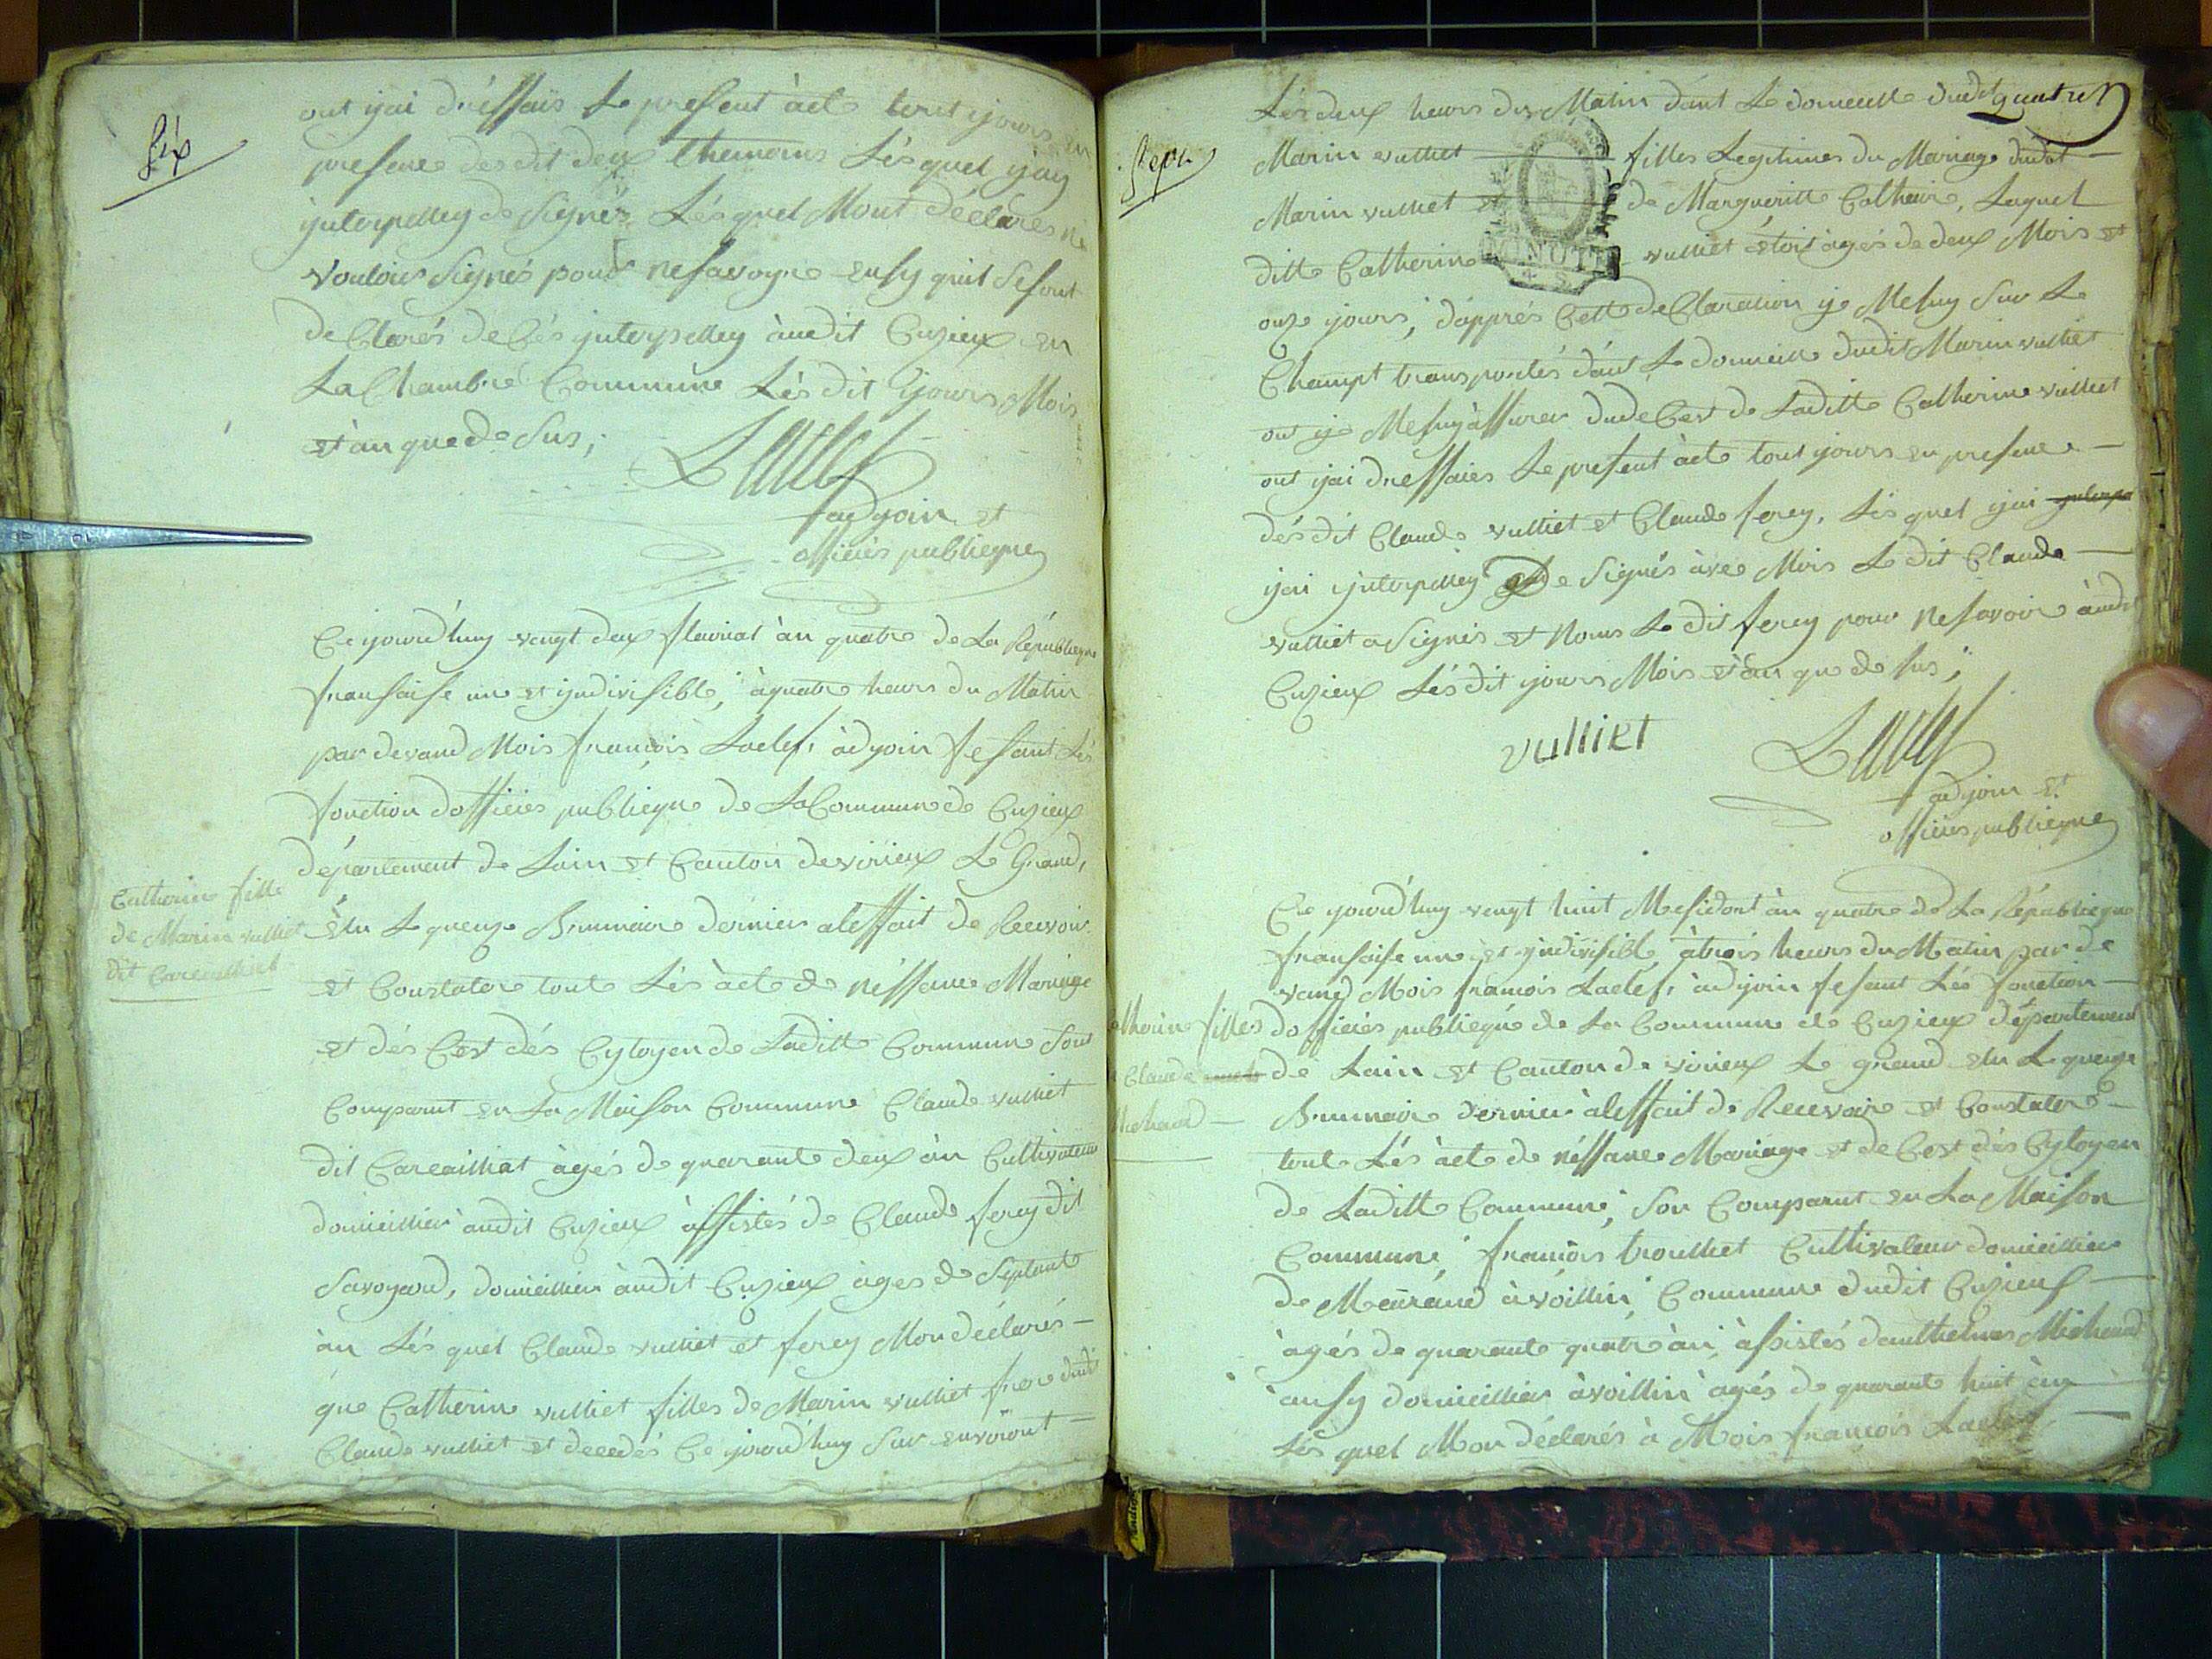 Six
ont ijai dréssais Le present àcte tout ijours en
presence desdit deux themoins Lésquel ijai
ijnterpelley de Signér Lésquel Mont déclarés ne
vouloir Signés pour ne savoyre ensy quil Sesont
deClarés de Cés ijnterpelley àudit Cuzieux en
La Chambre Commune Lés dit ijours Mois
et àn que de Sus ;
Laclef
adjoin et
officiés publicque
Ce ijourd'huy vengt deux flairial àn quatre de La Républicque
fransaise une et ijndivisible, àquatre heurs du Matin
par devand Mois françois Laclef, àdjoin fesant Lés
fonction dofficiés publicque de La Commune de Cuzieux
département de Lain et Canton de virieux Le Grand,
Catherine fille
de Marin vulliet
dit Carcailliat
élu Le quenze Brumaire dernier aleffait de Recevoir
et Constatere toute Lés àcte de néssance Mariage
et dés Cest dés Cytoyen de Laditte Commune Sont
Comparut en La Maison Commune Claude vulliet
dit Carcailliat àgés de quarante deux àn Cultivateur
domicillier àudit Cuzieux àssistés de Claude ferey dit
Savoyard, domicillier àudit Cuzieux àges de Septante
àn Lés quel Claude vulliet et ferey Mon déclarés —
que Catherine vulliet filles de Marin vulliet frere dudit
Claude vulliet et décedés Ce ijourd'huy Sur environt —
quatre
Sept
Lés deux heurs du Matin dant Le domicille dudit
Marin vulliet — filles Legitimes du Mariage dudit —
Marin vulliet et de Margueritte Catheire, Laquel
ditte Catherine vulliet étois àgés de deux Mois et
onze ijours, dapprés Cette deClaration ije Mesuy Sur Le
Champt transportés dant Le domicille dudit Marin vulliet
ont ije Mesuy àssurer dudeCest de Laditte Catherine vulliet
ont ijai dressaies Le present àcte tout ijours en presence —
dés dit Claude vulliet et Claude ferey, Lés quel ijai
ijai ijnterpelley de Signés àvec Mois Le dit Claude —
vulliet a Signés et Nons Le dit ferey pour ne savoir àudit
Cuzieux Lés dit ijours Mois et àn que de sus ;
vulliet
Laclef
adjoin et
officiés publicque
Ce ijourd'huy vengt huit Mesidort àn quatre de La Républicque
fransaise une et ijndivisible, àtrois heurs du Matin par de
vand Mois françois Laclef, àdjoin fesant Lés fonction —
atherine filles
Claude
Michaud —
dofficiés publicque de La Commune de Cuzieux département
de Lain et Canton de virieux Le grand élu Le quenze
Brumaire dernier àleffait de Recevoir et Constatere —
toute Lés àcte de néssance Mariage et de Cest dés Cytoyen
de Laditte Commune, Son Comparut en La Maison
Commune, françois trouilliet Cultivateur domicillier
de Meurand àvoillin Commune dudit Cuzieux —
àgés de quarante quatre àn, àssistés danthelmes Michaud
àusy domicillier àvoillin àgés de quarante huit àn —
Lés quel Mon déclarés à Mois françois Laclef, —